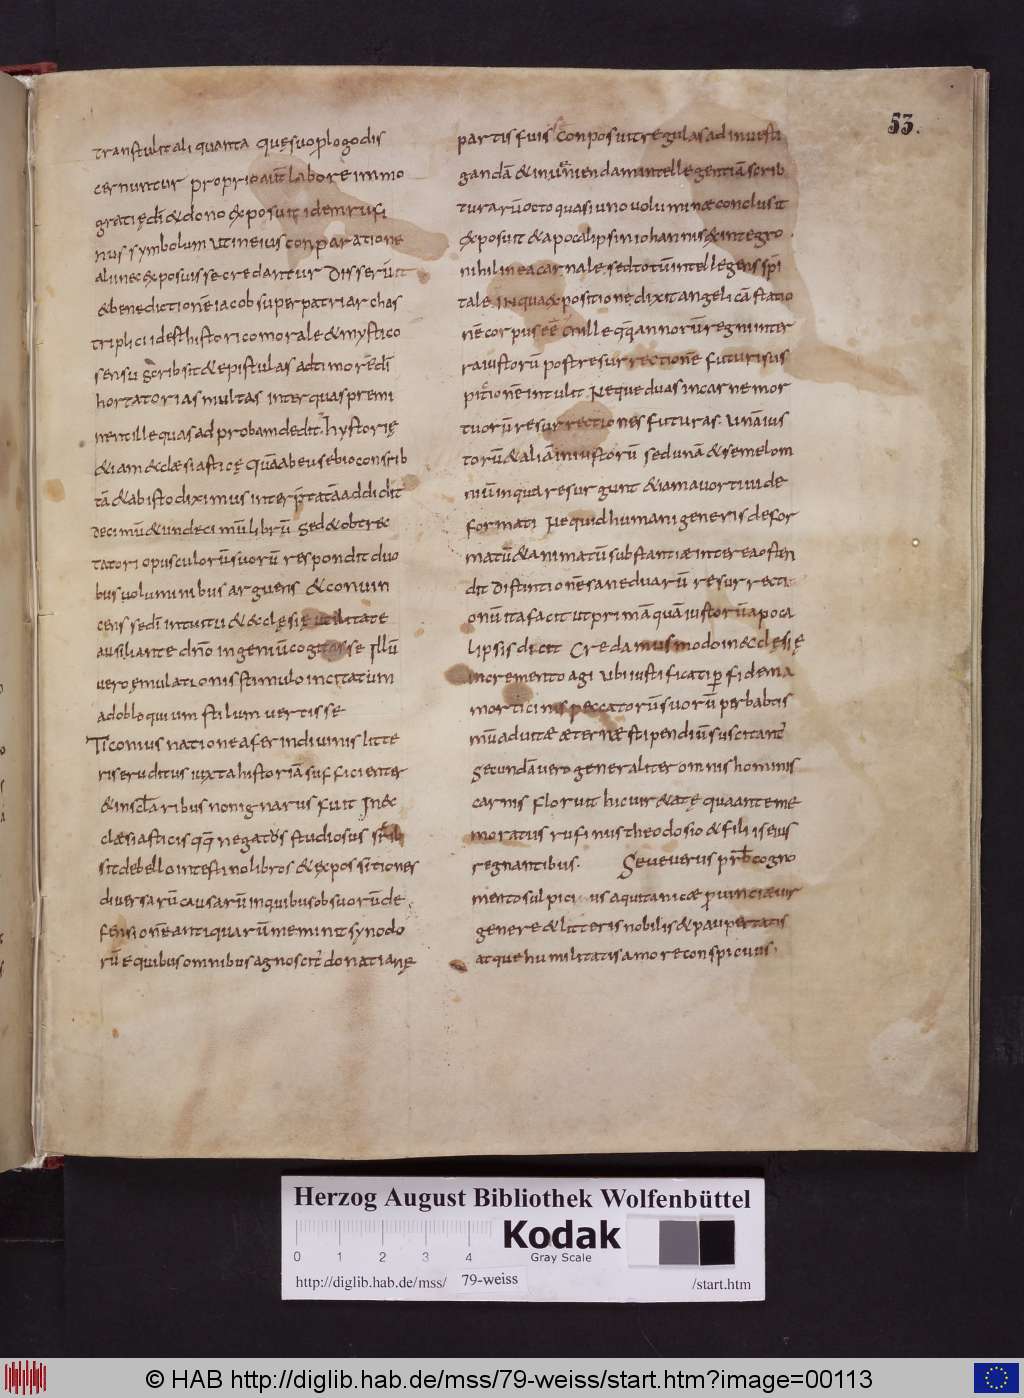 53.
tranſtulit ali quanta quęſuo ꝓlogo diſ
cernuntur proprio aut̄ labore immo
gratię dī & dono expoſuit idem rufi
nus symbolum ut in eius conparatione
alii nec expoſuiſſe credantur Diſſeruit
& benedictionē iacob ſuper patriarchas
triplici id eſt hiſtorico morale & myſtico
senſu Scribſit & epiſtulas ad timorē dī
hortatorias multas inter quas premi
nent ille quas ad probam dedit. hyſtorię
&iam &clæſiaſticę Quā ab euſebio conſcrib
tā & ab iſto diximus interp̄tatā addidit
decimū & undecimū librū Sed & obtrec
tatori opuſculorū ſuorū reſpondit duo
bus voluminibus arguens & convin
cens se dī intuitu & &cleſię utilitate
auxiliante dn̄o ingeniū cogitaſſe Illū
vero ęmulationis ſtimulo incitatum
ad obloquium ſtilum vertiſſe
Ticonius natione afer in divinis litte
ris eruditus iuxta hiſtoriā ſufficienter
& in sclaribus non ignarus fuit In &c
clæſiaſticis qq̄ negotiis ſtudioſus scrib
sit de bello inteſtino libros & expoſitiones
diverſarū cauſarū in quibus ob ſuorū de
fenſionē antiquarū meminit synodo
rū E quibus omnibus agnoſcit̄ donatianę
partis fuiſ Conpoſuit regulas ad inveſti
gandā & inveniendam intellegentiā scrib
turarū octo quas in uno volumine concluſit
expoſuit & apocalipſin iohannis ex integro.
nihil in ea carnale. sed totū intellegens sp̄i
tale. In qua expoſitione dixit angelicā ſtatio
nē corpus eē Mille q̄q̄ annorū regni in ter
ra iuſtorū poſt reſurrectionē futuri suſ
pitionē intulit Neque duas in carne mor
tuorū reſurrectiones futuras. Unā ius
torū & aliā iniuſtorū sed unā & semel om
niū in qua reſurgunt &iam avortivi de
formati Ne quid humani generis defor
matū & animatū subſtantiæ interea oſten
dit Diſtintionē sane duarū reſurrecti
onū ita facit ut primā quā iuſtorū apoca
lipſis dicit Credamus modo in æccleſię
incremento agi ubi iuſtificati ꝑ fidem a
morticinis peccatorū ſuorū per babtis
mū ad vitæ æternæ ſtipendiū suscitant̄
Secundā vero generaliter omnis hominis
carnis Floruit hic vir &atę qua ante me
moratus rufinus theodoſio & filiis eius
regnantibus. Seveverus prb̄ cogno
mento sulpicius aquitanicæ ꝓvinciæ vir
genere & litteris nobilis & paupertatis
atque humilitatis amore conſpicuus.
Herzog August Bibliothek Wolfenbüttel
Kodak
Gray Scale
0 1 2 3 4
http://diglib.hab.de/mss/ 79-weiss /start.htm
© HAB http://diglib.hab.de/mss/79-weiss/start.htm?image=00113